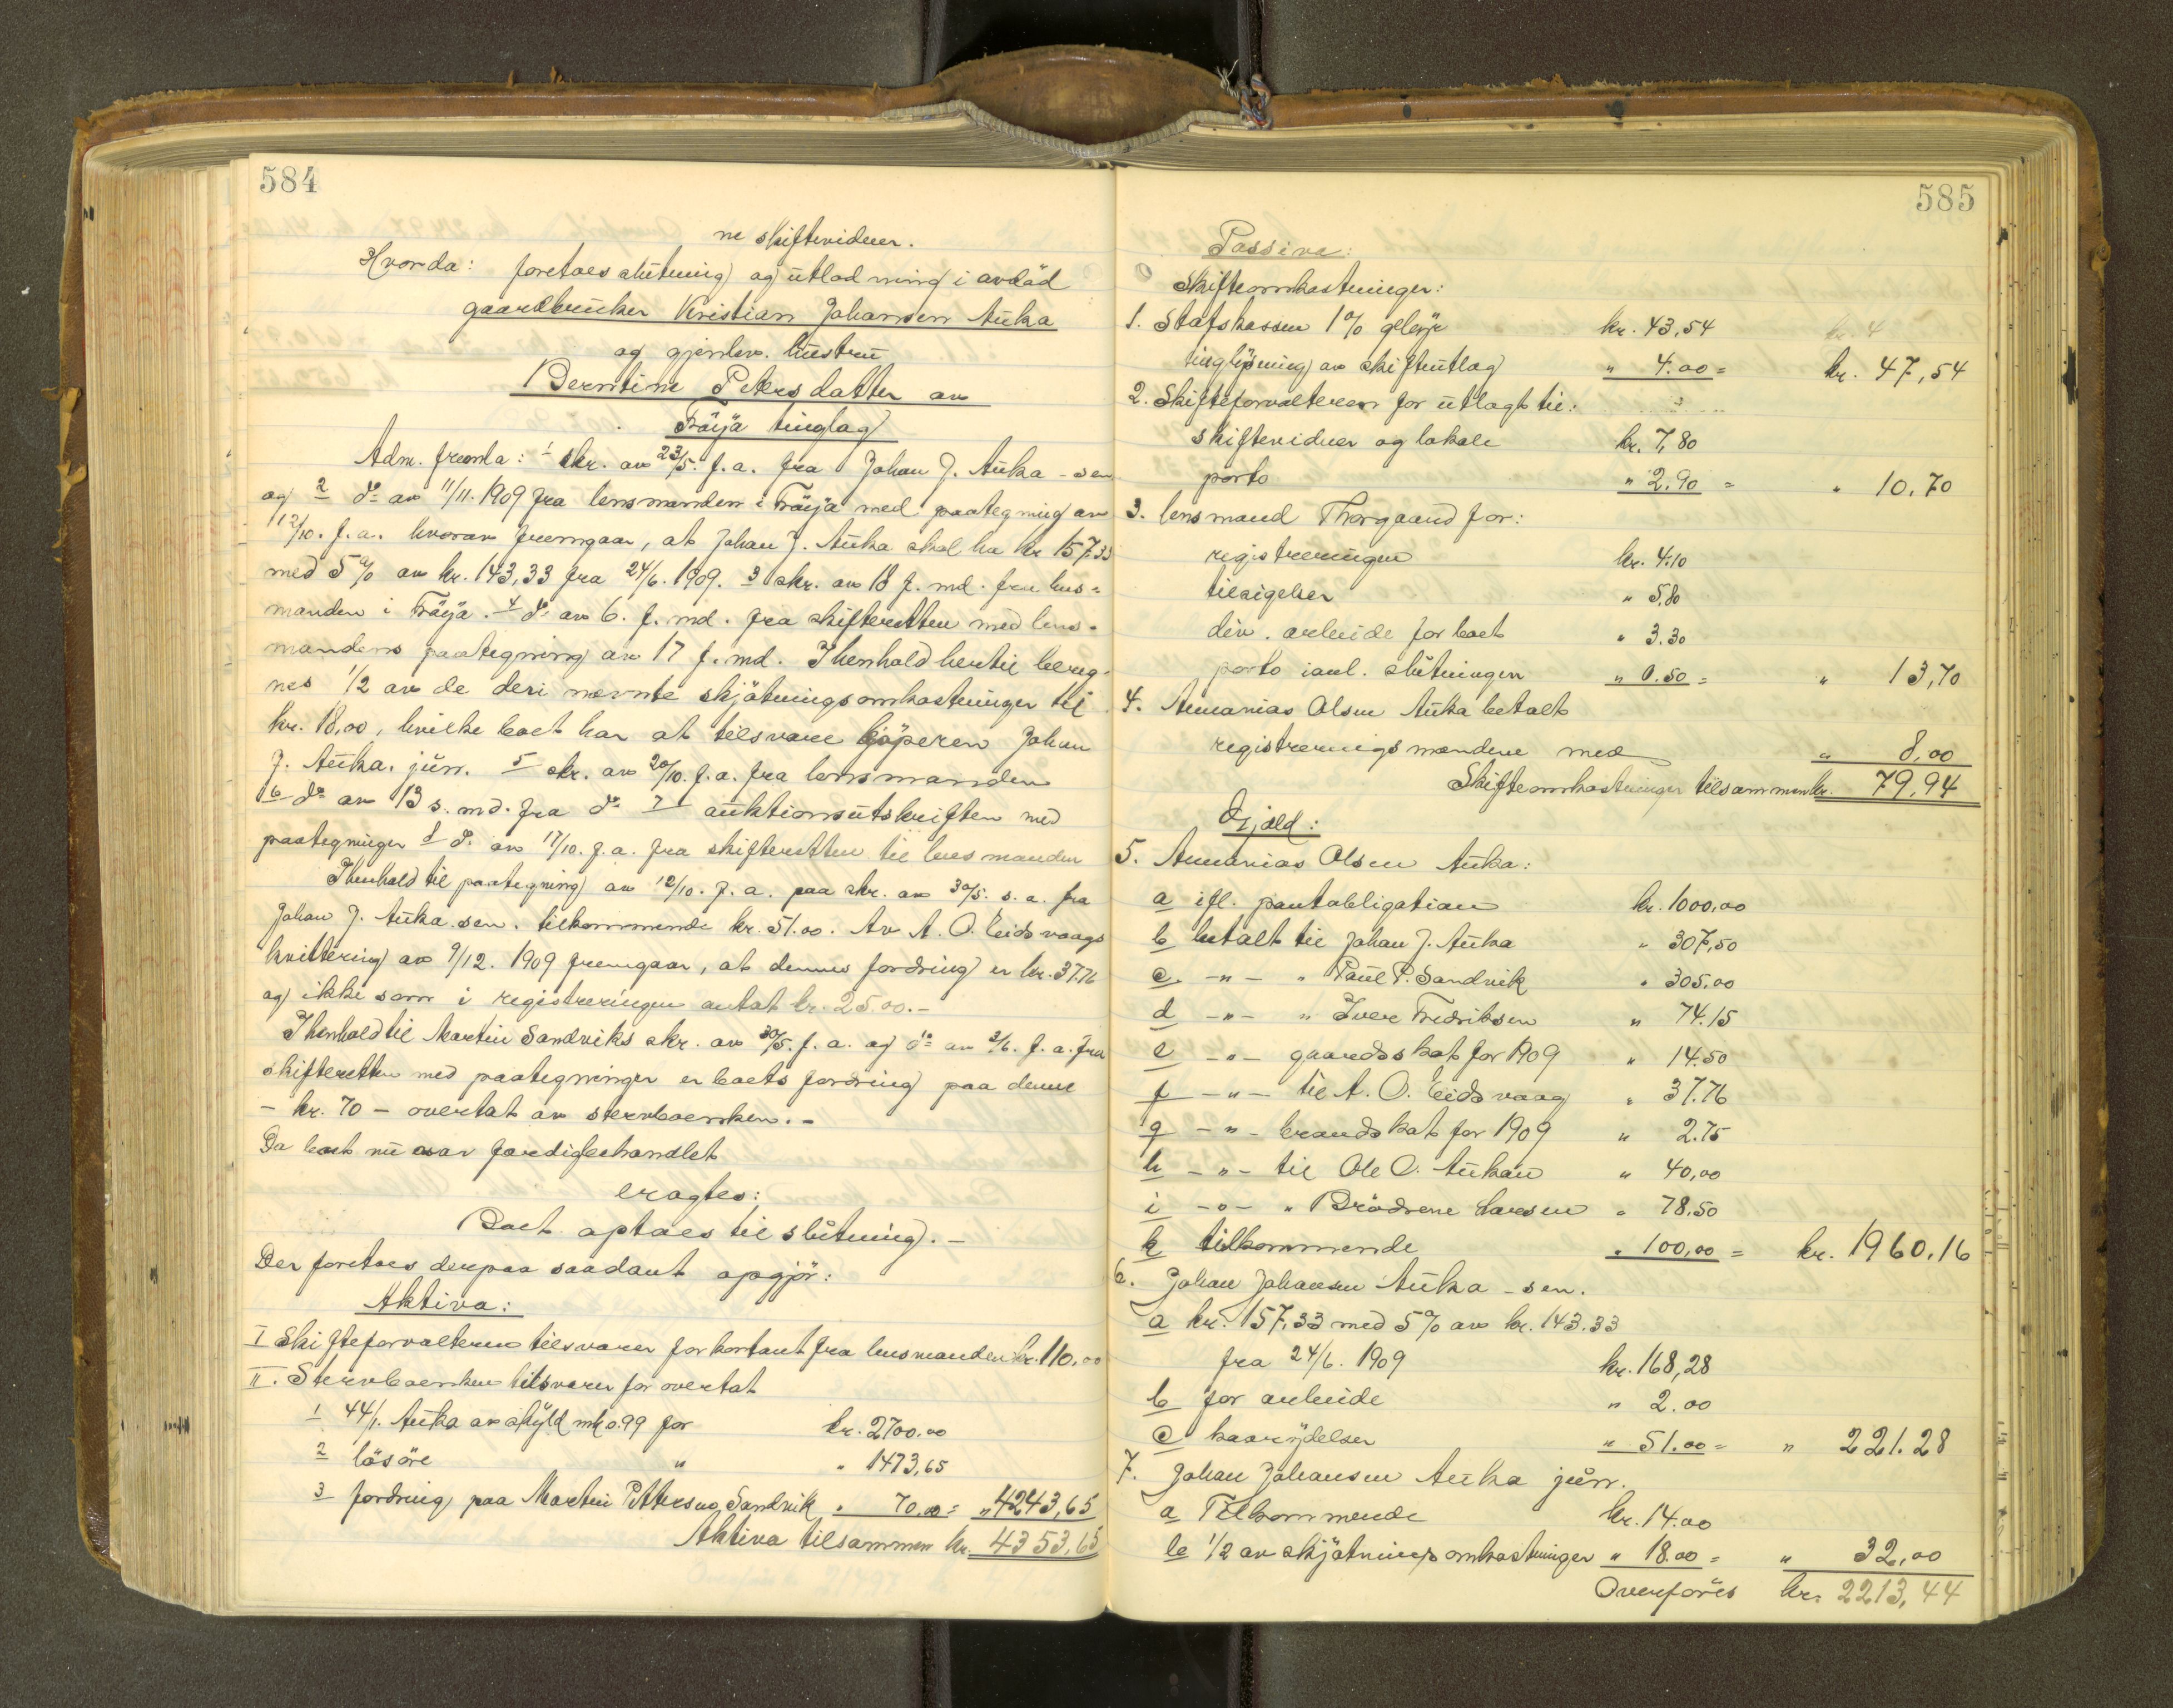 584
ne skiftevidner.
Hvorda: foretoes slutning og utlodning i avdöd
gaardbruker Kristian Johansen Auka
og gjenlev. hustru
Berntine Petersdatter av
Fröya tinglag
Adm. freml a: 1 skr. av 23/5. f. a. fra Johan J. Auka - sen
og 2 do av 11/11. 1909 fra lensmanden i Fröya med paategning av
12/10. f. a. hvorav fremgaar, at Johan J. Auka skal ha kr 157.33
med 5% av kr. 143,33 fra 24/6. 1909. 3 skr. av 18 f. md. fra lens=
manden i Fröya. 4 do av 6. f. md. fra skifteretten med lens-
mandens paategning av 17 f. md. I henhold hertil bereg-
nes 1/2 av de deri nævnte skjötningsomkostninger til
kr. 18,00, hvilke boet har at tilsvare kjöperen Johan
J. Auka. jun. 5 skr. av 20/10. f. a. fra lensmanden
6 do av 13 s. md. fra do 7 auktionsutskriften med
paategninger 8 do av 17/10. f. a. fra skifteretten til lensmanden
I henhold til paategning av 12/10. f. a. paa skr. av 30/5. s. a. fra
Johan J. Auka sen. tilkommende kr. 51.00. Av A. O. Eidsvaags
kvittering av 9/12. 1909 fremgaar, at dennes fordring er kr. 37.76
og ikke som i registreringen antat kr. 25.00.-
I henhold til Martin Sandviks skr. av 30/5. f. a. og do av 2/6. f. a. fra
skifteretten med paategninger er boets fordring paa denne
- kr. 70 - overtat av stervboenken.-
Da boet nu var færdigbehandlet
eragtes:
Boet optoes til slutning.-
Der foretoes derpaa saadant opgjör:
Aktiva:
I Skifteforvalteren tilsvarer for kontant fra lensmanden kr. 110.00
II. Stervboenken tilsvarer for overtat
1 44/1. Auka av skyld mk 0.99 for kr. 2700.00
2 lösöre " " 1473,65
3 fordring paa Martin Pettersen Sandvik " 70.00 = " 4243,65
Aktiva tilsammen kr. 4353,65
585
Passiva:
Skifteomkostninger:
1. Statskassen 1% gebyr kr. 43,54
tinglysning av skifteutlæg " 4.00 = kr. 47,54
2. Skifteforvalteren for utlagt til:
skiftevidner og lokale kr. 7,80
porto " 2.90 = " 10.70
3. lensmand Thorgaard for:
registreringen kr. 4.10
tilsigelser " 5,80
div. arbeide for boet " 3.30
porto ianl. slutningen " 0.50 = " 13,70
4. Annanias Olsen Auka betalt
registreringsmændene med " 8,00
Skifteomkostninger tilsammen kr. 79,94
Gjæld:
5. Annanias Olsen Auka:
a ifl. pantobligation kr. 1000,00
b betalt til Johan J. Auka " 307,50
c -"- " Paul P. Sandvik " 305.00
d -"- " Iver Fredriksen " 74.15
e -"- gaardsskat for 1909 " 14.50
f -"- til A. O. Eidsvaag " 37.76
g -"- brandskat for 1909 " 2.75
h -"- til Ole O. Aukan " 40,00
i -"- " Brödrene Larsen " 78.50
k tilkommende " 100,00 = kr. 1960.16
6. Johan Johansen Auka - sen.
a kr. 157,33 med 5% av kr. 143.33
fra 24/6. 1909 kr. 168,28
b for arbeide " 2.00
c kaarydelser " 51.00 = " 221.28
7. Johan Johansen Auka jun.
a Tilkommende kr. 14.00
b 1/2 av skjötningsomkostninger " 18.00 = " 32,00
Overföres kr. 2213,44